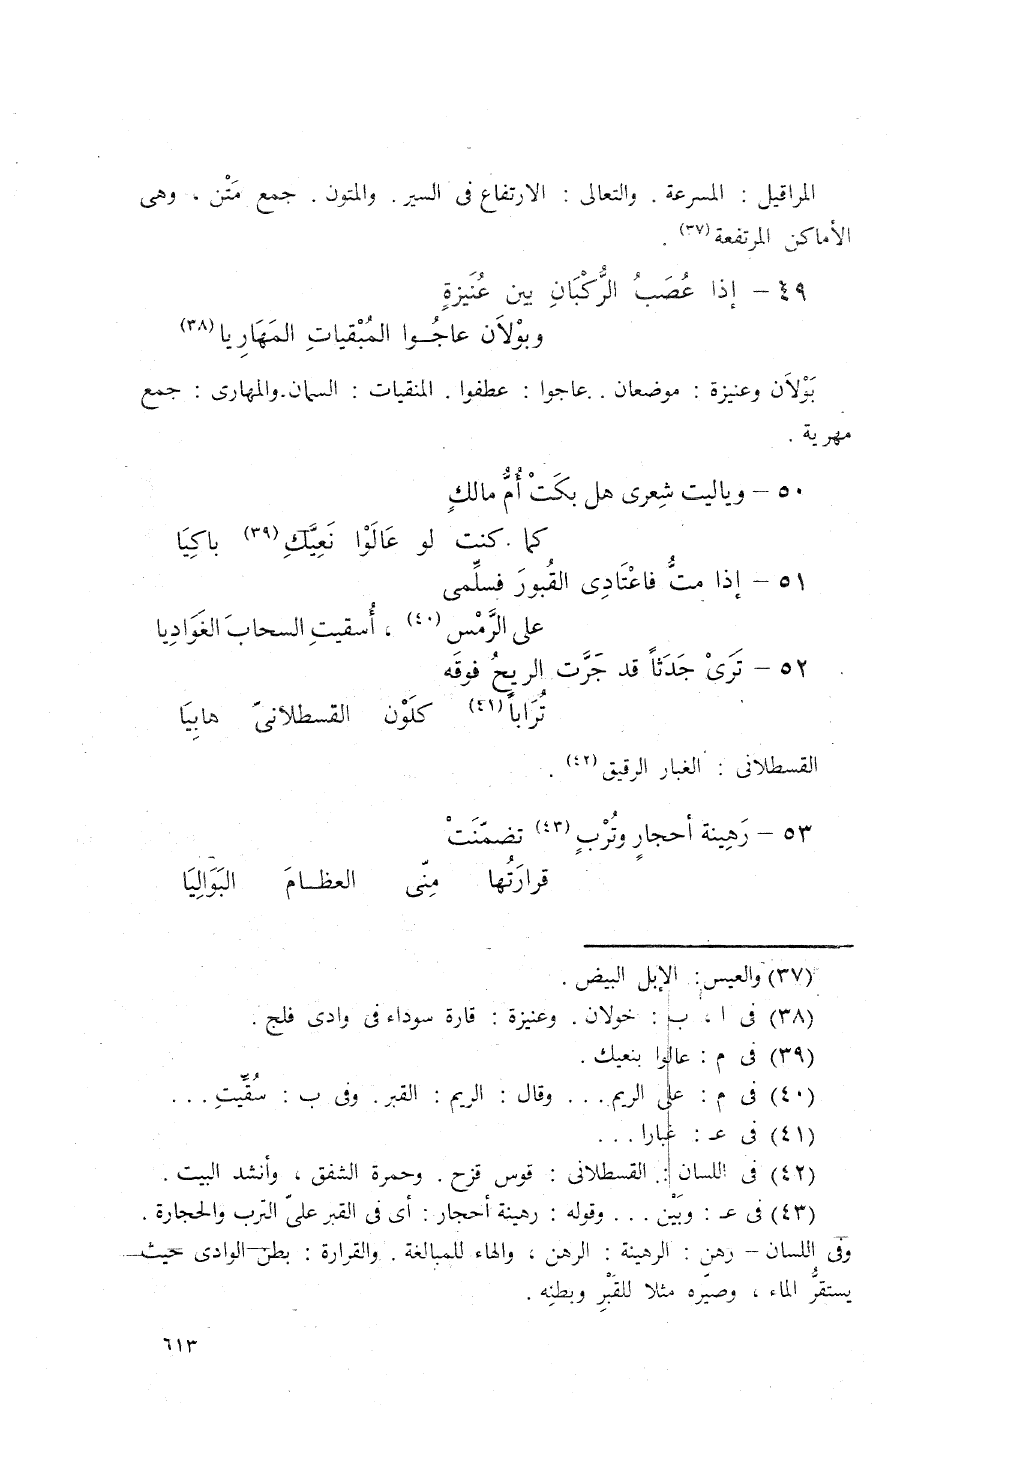 المراقيل : المسرعة . والتعالى : الارتفاع فى السير . والمتون . جمع مَتْن ، وهى
الأماكن المرتفعة (٣٧) .
٤٩ – إذا عُصَبُ الرُّكْبَانِ بين عُنَيزةٍ
وبوْلاَن عاجُـوا المُبْقياتِ المَهَارِيا (٣٨)
بَوْلاَن وعنيزة : موضعان . . عاجوا : عطفوا . المنقيات : السمان . والمهارى : جمع
مهرية .
٥٠ – وياليت شِعرى هل بكَتْ أُمُّ مالكٍ
كما . كنت لو عَالَوْا نَعِيَّكِ (٣٩) باكِيَا
٥١ – إذا متُّ فاعْتَادِى القُبورَ فسلِّمى
على الرَّمْس (٤٠) ، أُسقيتِ السحابَ الغَوَادِيا
٥٢ – تَرَىْ جَدَثاً قد جَرَّت الريحُ فوقَه
تُرَاباً (٤١) كلَوْن القسطلانىّ هابِيَا
القسطلانى : الغبار الرقيق (٤٢) .
٥٣ – رَهِينة أحجارٍ وتُرْبٍ (٤٣) تضمّنَتْ
قرارَتُها مِنّى العظـامَ البَوَالِيَا
(٣٧) والعيس : الإبل البيض .
(٣٨) فى ا ، ب : خولان . وعنيزة : قارة سوداء فى وادى فلج .
(٣٩) فى م : عالوا بنعيك .
(٤٠) فى م : على الريم . . . وقال : الريم : القبر . وفى ب : سُقِّيتِ . . .
(٤١) فى عـ : غبارا . . .
(٤٢) فى اللسان : القسطلانى : قوس قزح . وحمرة الشفق ، وأنشد البيت .
(٤٣) فى عـ : وبَيْن . . . وقوله : رهينة أحجار : أى فى القبر علىّ الترب والحجارة .
وفى اللسان – رهن : الرهينة : الرهن ، والهاء للمبالغة . والقرارة : بطن الوادى حيث
يستقرُّ الماء ، وصيّره مثلا للقَبْرِ وبطنِه .
٦١٣